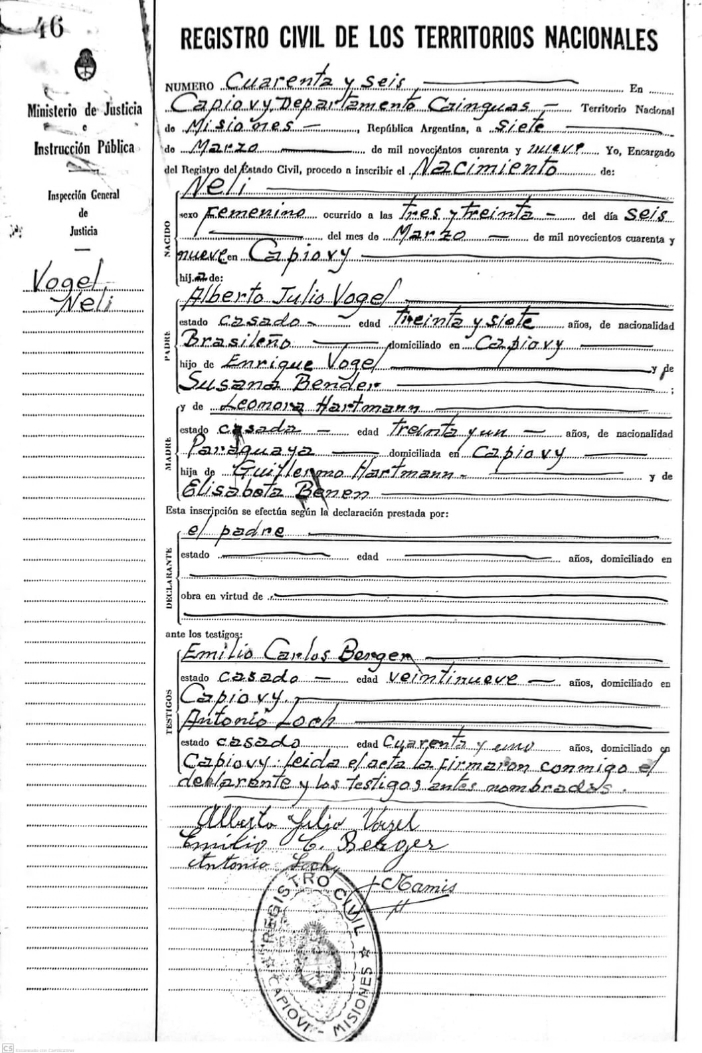 46
Ministerio de Justicia
e
Instrucción Pública
Inspección General
de
Justicia
Vogel
Neli
REGISTRO CIVIL DE LOS TERRITORIOS NACIONALES
NUMERO Cuarenta y seis En
Capiovy, Departamento Cainguas Territorio Nacional
de Misiones, República Argentina, a siete
de Marzo de mil novecientos cuarenta y nueve Yo, Encargado
del Registro del Estado Civil, procedo a inscribir el Nacimiento de:
NACIDO
Neli
sexo femenino ocurrido a las tres y treinta del día seis
del mes de Marzo de mil novecientos cuarenta y
nueve en Capiovy
hij a de:
PADRE
Alberto Julio Vogel
estado casado edad treinta y siete años, de nacionalidad
Brasileño domiciliado en Capiovy
hijo de Enrique Vogel y de
Susana Bender ;
MADRE
y de Leonora Hartmann
estado casada edad treinta y un años, de nacionalidad
Paraguaya domiciliada en Capiovy
hija de Guillermo Hartmann y de
Elisabeta Benen
Esta inscripción se efectúa según la declaración prestada por:
DECLARANTE
el padre
estado edad años, domiciliado en
obra en virtud de
ante los testigos:
TESTIGOS
Emilio Carlos Berger
estado casado edad veintinueve años, domiciliado en
Capiovy.
Antonio Loch
estado casado edad cuarenta y uno años, domiciliado en
Capiovy: leida el acta la firmaron conmigo el
declarante y los testigos antes nombrados.
Alberto Julio Vogel
Emilio C. Berger
Antonio Loch
REGISTRO CIVIL
CAPIOVI - MISIONES
CS